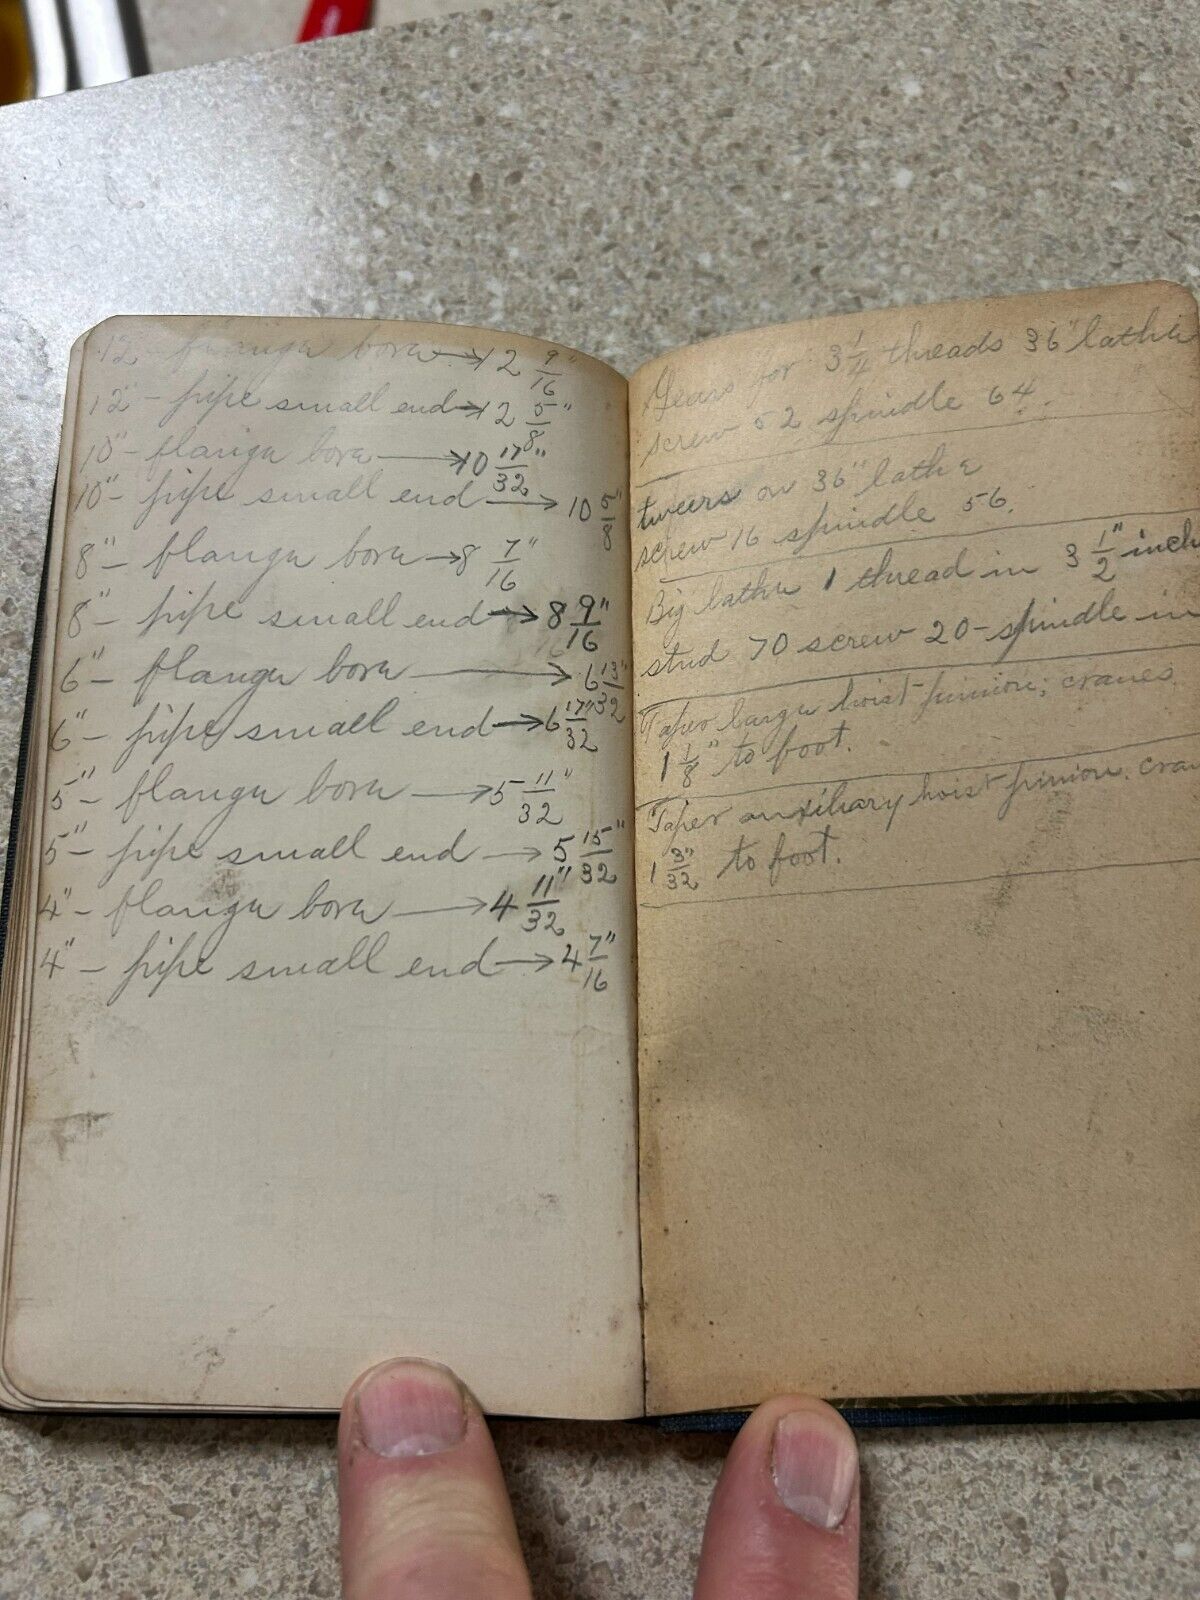 12 - flange bore → 12 9/16"
12" - pipe small end → 12 5/8"
10" - flange bore → 10 17/32"
10" - pipe small end → 10 5/8"
8" - flange bore → 8 7/16"
8" - pipe small end → 8 9/16"
6" - flange bore → 6 13/32"
6" - pipe small end → 6 17/32"
5" - flange bore → 5 11/32"
5" - pipe small end → 5 15/32"
4" - flange bore → 4 11/32"
4" - pipe small end → 4 7/16"
Gears for 3 1/4 threads 36" lathe
screw 52 spindle 64.
tweers on 36" lathe
screw 16 spindle 56.
Big lathe 1 thread in 3 1/2" inch
stud 70 screw 20 - spindle in
Taper large hoist pinion; cranes
1 1/8" to foot.
Taper auxiliary hoist pinion. cran
1 3/32" to foot.